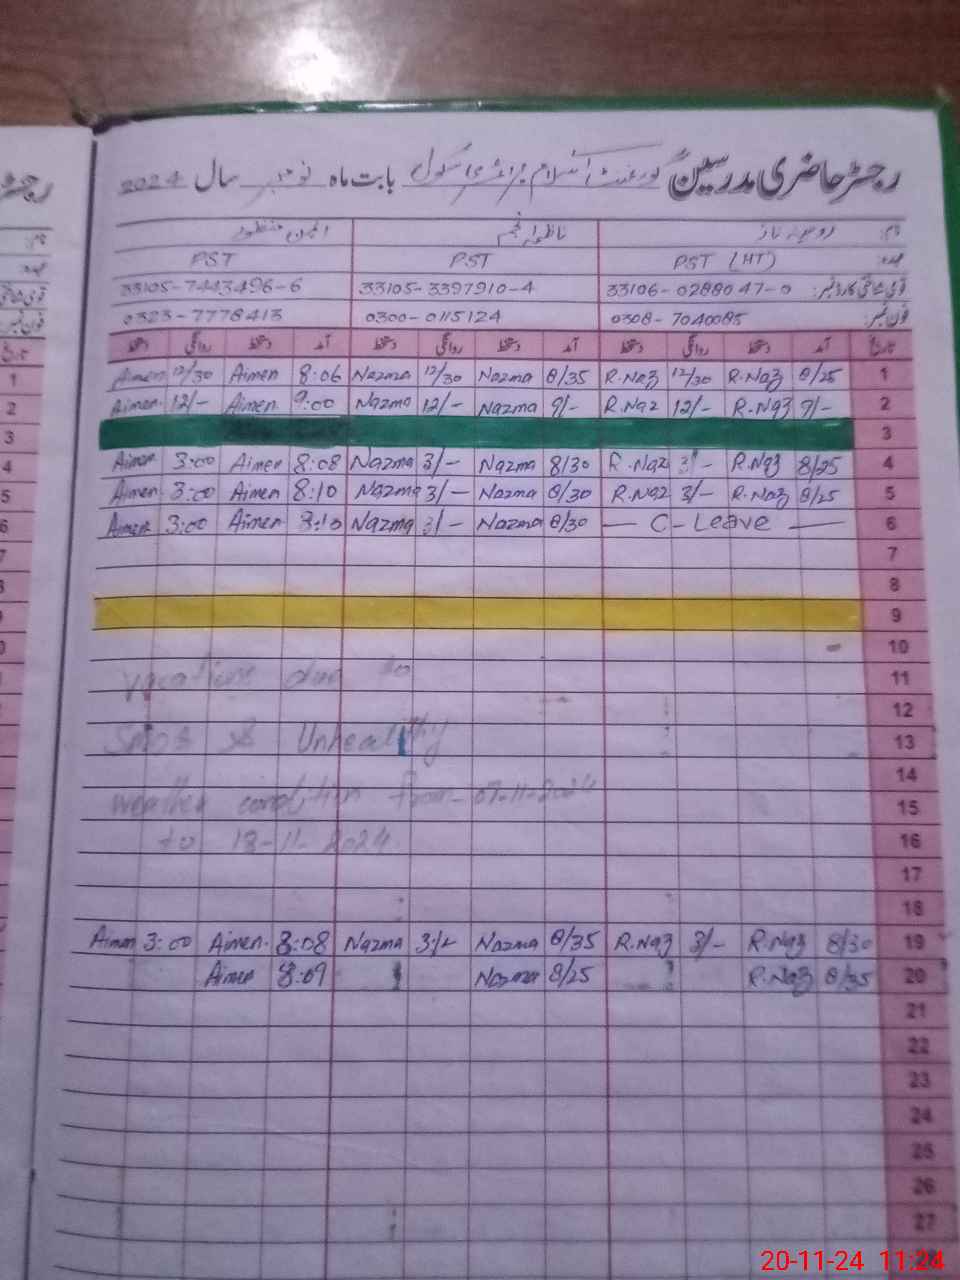 رجسٹر حاضری مدرسین گورنمنٹ اسلام پرائمری سکول بابت ماہ نومبر سال 2024
نام: روبینہ ناز ناظمہ انجم ایمن منظور
عہدہ: PST (HT) PST PST
قومی شناختی کارڈ نمبر: 33106-0288047-0 33105-3397910-4 33105-7443496-6
فون نمبر: 0308-7040085 0300-0115124 0323-7778413
تاریخ آمد دستخط روانگی دستخط آمد دستخط روانگی دستخط آمد دستخط روانگی دستخط
Aimen 12/30 Aimen 8:06 Nazma 12/30 Nazma 8/35 R.Naz 12/30 R.Naz 8/25 1
Aimen 12/- Aimen 9:00 Nazma 12/- Nazma 9/- R.Naz 12/- R.Naz 9/- 2
3
Aimen 3:00 Aimen 8:08 Nazma 3/- Nazma 8/30 R.Naz 3/- R.Naz 8/25 4
Aimen 3:00 Aimen 8:10 Nazma 3/- Nazma 8/30 R.Naz 3/- R.Naz 8/25 5
Aimen 3:00 Aimen 8:10 Nazma 3/- Nazma 8/30 — C-Leave — 6
7
8
9
10
vacations due to 11
12
Smog & Unhealthy 13
14
weather condition from 07-11-2024 15
to 18-11-2024 16
17
18
Aimen 3:00 Aimen 8:08 Nazma 3/- Nazma 8/35 R.Naz 3/- R.Naz 8/30 19
Aimen 8:09 Nazma 8/25 R.Naz 8/35 20
21
22
23
24
25
26
27
28
20-11-24 11:24